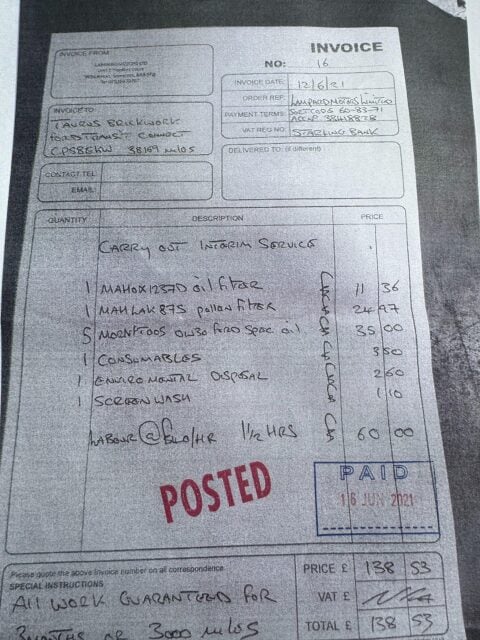 INVOICE
INVOICE FROM
NO: 16
INVOICE DATE: 12/6/21
ORDER REF:
PAYMENT TERMS: SORTCODE 60-83-71
VAT REG NO: STARLING BANK
INVOICE TO
TAURUS BRICKWORK
FORD TRANSIT CONNECT
38169 miles
DELIVERED TO: (if different)
CONTACT TEL:
EMAIL:
QUANTITY DESCRIPTION PRICE
CARRY OUT INTERIM SERVICE
1 MAHOX1237D oil filter 11 36
1 MAHLAK875 pollen filter 24 97
5 0W30 FORD Spec oil 35 00
1 CONSUMABLES 3 50
1 ENVIROMENTAL DISPOSAL 2 60
1 SCREENWASH 1 10
LABOUR @ £40/HR 1 1/2 HRS 60 00
POSTED
PAID
16 JUN 2021
Please quote the above invoice number on all correspondence.
SPECIAL INSTRUCTIONS
All WORK GUARANTEED FOR
3 MONTHS OR 3000 miles
PRICE £ 138 53
VAT £ N/A
TOTAL £ 138 53